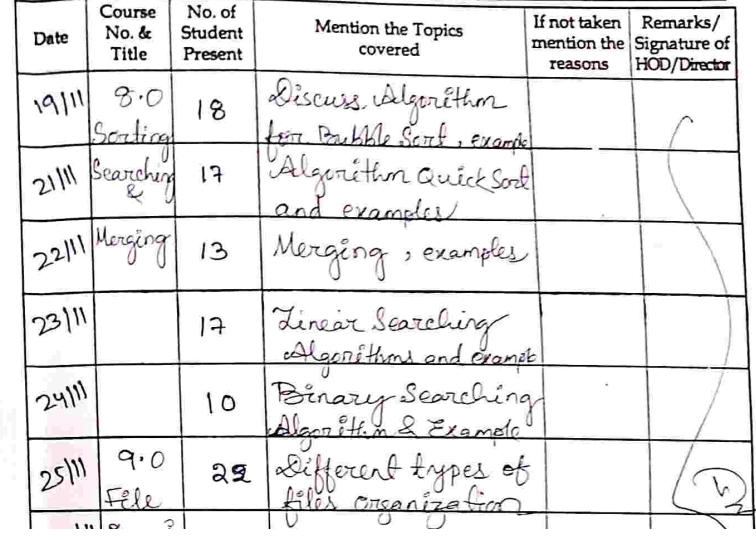 Date Course No. & Title No. of Student Present Mention the Topics covered If not taken mention the reasons Remarks/ Signature of HOD/Director
19/11 8.0 18 Discuss Algorithm
Sorting for Bubble Sort, example
21/11 Searching & 17 Algorithm Quick Sort
and examples
22/11 Merging 13 Merging, examples
23/11 17 Linear Searching
Algorithms and exampl
24/11 10 Binary Searching
Algorithm & Example
25/11 9.0 22 Different types of
File files organization